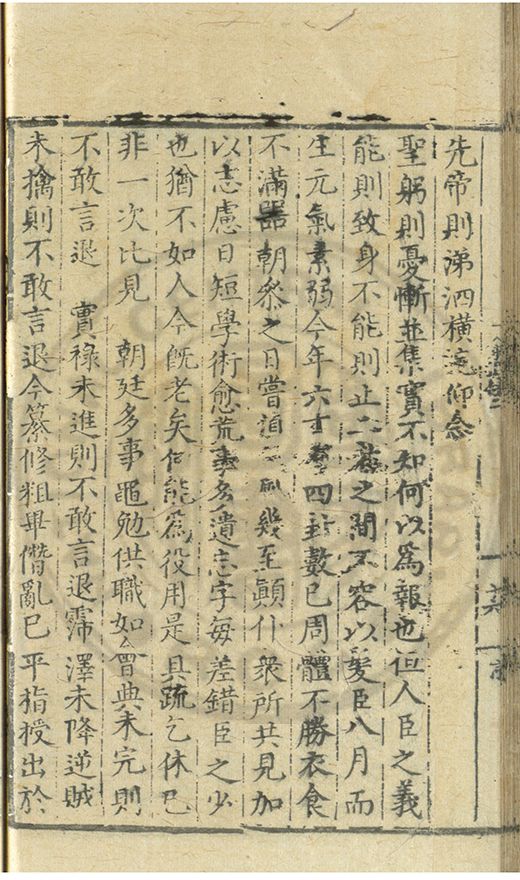 先帝則涕泗橫流仰念
聖躬則憂慚並集實不如何以爲報也但人臣之義
能則致身不能則止二者之間不容以髮臣八月而
生元氣素弱今年六十四計數已周體不勝衣食
不滿器朝參之日嘗幾至顛仆衆所共見加
以志慮日短學術愈荒事多遺忘字每差錯臣之少
也猶不如人今旣老矣何能爲役用是具疏乞休已
非一次比見　朝廷多事黽勉供職如會典未完則
不敢言退　實祿未進則不敢言退霈澤未降逆賊
未擒則不敢言退今纂修粗畢僭亂已平指授出於